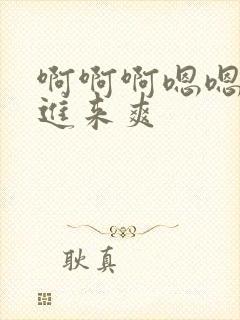 啊啊啊嗯嗯
进来爽
耿真